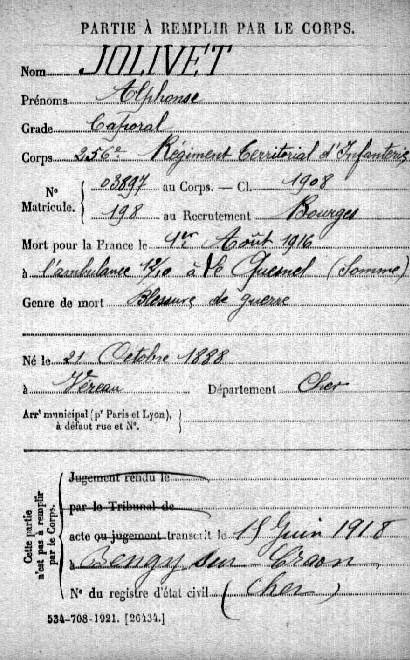 PARTIE À REMPLIR PAR LE CORPS.
Nom JOLIVET
Prénoms Alphonse
Grade Caporal
Corps 256e Régiment Territorial d'Infanterie
N° Matricule. { 03897 au Corps. — Cl. 1908
198 au Recrutement Bourges
Mort pour la France le 1er Août 1916
à l'ambulance à Le Quesnel (Somme)
Genre de mort Blessure de guerre
Né le 21 Octobre 1888
à Vereau Département Cher
Arrt municipal (pr Paris et Lyon), à défaut rue et N°. }
Cette partie n'est pas à remplir par le Corps. {
Jugement rendu le
par le Tribunal de
acte ou jugement transcrit le 15 Juin 1918
à Bengy sur Craon
N° du registre d'état civil (Cher)
534-708-1921. [26434.]